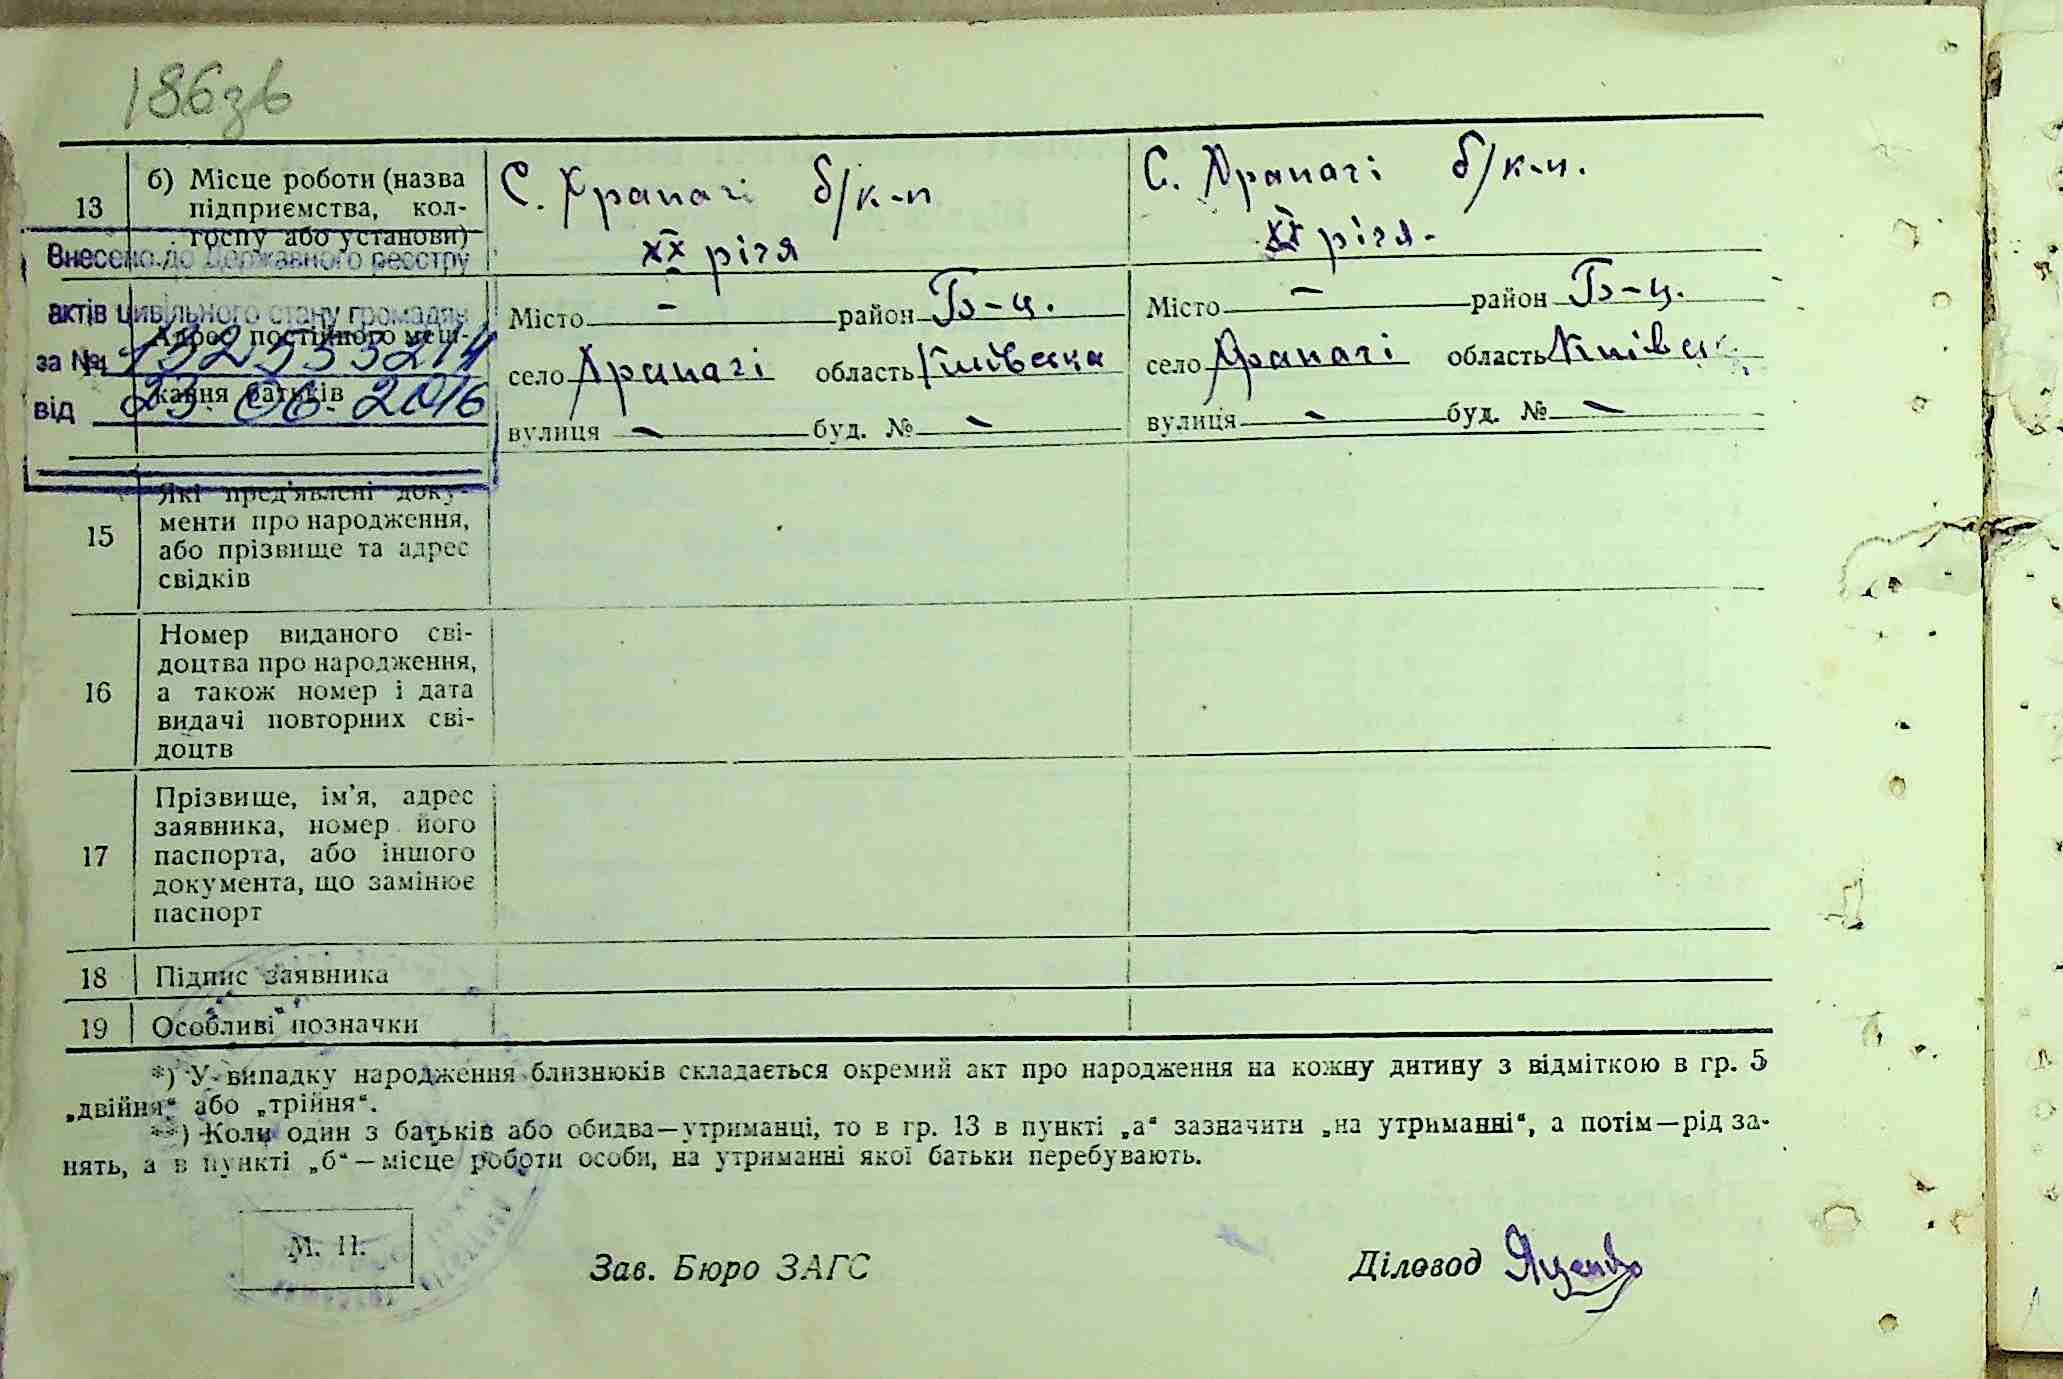 186зв
13 б) Місце роботи (назва підприємства, колгоспу або установи)
С. Храпачі б/к-п
ХХ річя
С. Храпачі б/к-п.
ХХ річя-
Внесено до Державного реєстру
актів цивільного стану громадян
за №
від 23.06.2016
Адрес постійного меш-
кання батьків
Місто - район Б-ц.
село Храпачі область Київська
вулиця - буд. № -
Місто - район Б-ц.
село Храпачі область Київськ
вулиця - буд. № -
15 Які пред'явлені доку-
менти про народження,
або прізвище та адрес
свідків
16 Номер виданого сві-
доцтва про народження,
а також номер і дата
видачі повторних сві-
доцтв
17 Прізвище, ім'я, адрес
заявника, номер його
паспорта, або іншого
документа, що замінює
паспорт
18 Підпис заявника
19 Особливі позначки
*) У випадку народження близнюків складається окремий акт про народження на кожну дитину з відміткою в гр. 5
„двійня“ або „трійня“.
**) Коли один з батьків або обидва—утриманці, то в гр. 13 в пункті „а“ зазначити „на утриманні“, а потім—рід за-
нять, а в пункті „б“—місце роботи особи, на утриманні якої батьки перебувають.
М. П.
Зав. Бюро ЗАГС
Діловод Яценко